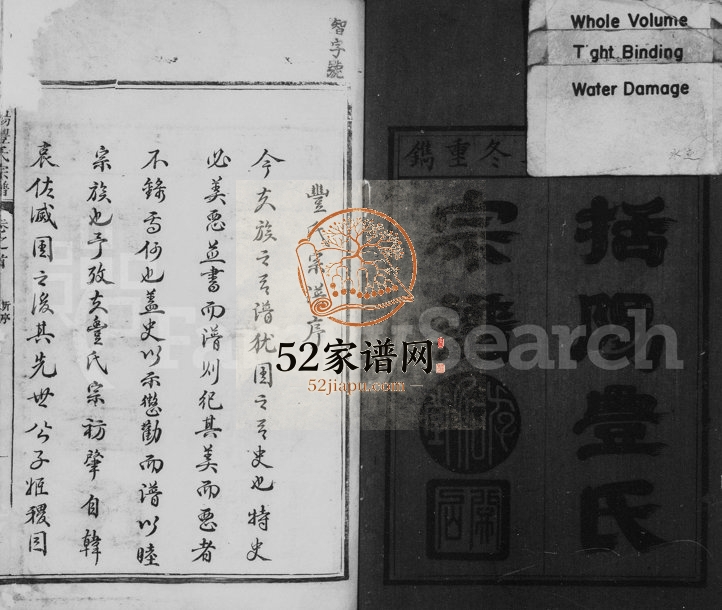 Whole Volume
Tight Binding
Water Damage
冬重鐫
括陽豊氏
宗譜
智字號
豐 宗譜序
今夫族之有譜犹国之有史也特史
必美惡並書而譜则纪其美而惡者
不錄焉何也盖史以示懲勸而譜以睦
宗族也予攷夫豐氏宗祊肇自韓
哀佐滅国之後其先世公子姬稷因
豐氏宗譜
卷之首
新序
52家谱网
52jiapu.com
FamilySearch